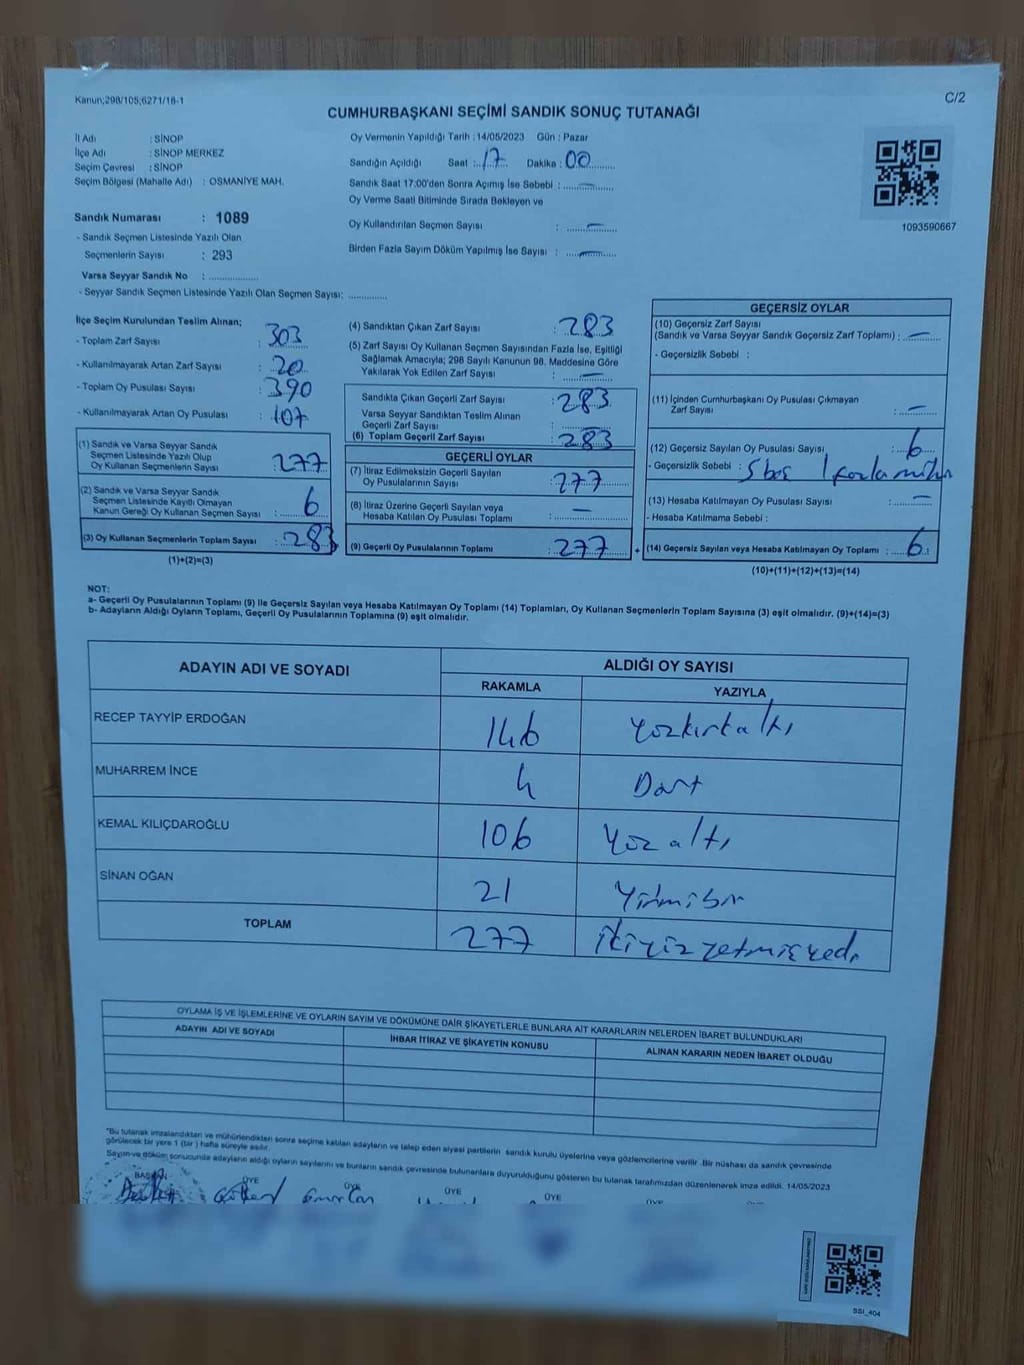 Kanun;298/105;6271/16-1
C/2
CUMHURBAŞKANI SEÇİMİ SANDIK SONUÇ TUTANAĞI
İl Adı : SİNOP
İlçe Adı : SİNOP MERKEZ
Seçim Çevresi : SİNOP
Seçim Bölgesi (Mahalle Adı) : OSMANİYE MAH.
Sandık Numarası : 1089
- Sandık Seçmen Listesinde Yazılı Olan
Seçmenlerin Sayısı : 293
Varsa Seyyar Sandık No : ................
- Seyyar Sandık Seçmen Listesinde Yazılı Olan Seçmen Sayısı: ............
Oy Vermenin Yapıldığı Tarih : 14/05/2023 Gün : Pazar
Sandığın Açıldığı Saat : 17 Dakika : 00
Sandık Saat 17:00'den Sonra Açımış İse Sebebi : —
Oy Verme Saati Bitiminde Sırada Bekleyen ve
Oy Kullandırılan Seçmen Sayısı : —
Birden Fazla Sayım Döküm Yapılmış İse Sayısı : —
1093590667
İlçe Seçim Kurulundan Teslim Alınan;
- Toplam Zarf Sayısı : 303
- Kullanılmayarak Artan Zarf Sayısı : 20
- Toplam Oy Pusulası Sayısı : 390
- Kullanılmayarak Artan Oy Pusulası : 107
(1) Sandık ve Varsa Seyyar Sandık
Seçmen Listesinde Yazılı Olup
Oy Kullanan Seçmenlerin Sayısı : 277
(2) Sandık ve Varsa Seyyar Sandık
Seçmen Listesinde Kayıtlı Olmayan
Kanun Gereği Oy Kullanan Seçmen Sayısı : 6
(3) Oy Kullanan Seçmenlerin Toplam Sayısı : 283
(1)+(2)=(3)
(4) Sandıktan Çıkan Zarf Sayısı : 283
(5) Zarf Sayısı Oy Kullanan Seçmen Sayısından Fazla İse, Eşitliği
Sağlamak Amacıyla; 298 Sayılı Kanunun 98. Maddesine Göre
Yakılarak Yok Edilen Zarf Sayısı : —
Sandıkta Çıkan Geçerli Zarf Sayısı : 283
Varsa Seyyar Sandıktan Teslim Alınan
Geçerli Zarf Sayısı :
(6) Toplam Geçerli Zarf Sayısı : 283
GEÇERLİ OYLAR
(7) İtiraz Edilmeksizin Geçerli Sayılan
Oy Pusulalarının Sayısı : 277
(8) İtiraz Üzerine Geçerli Sayılan veya
Hesaba Katılan Oy Pusulası Toplamı : —
(9) Geçerli Oy Pusulalarının Toplamı : 277 +
GEÇERSİZ OYLAR
(10) Geçersiz Zarf Sayısı
(Sandık ve Varsa Seyyar Sandık Geçersiz Zarf Toplamı) : —
- Geçersizlik Sebebi :
(11) İçinden Cumhurbaşkanı Oy Pusulası Çıkmayan
Zarf Sayısı : —
(12) Geçersiz Sayılan Oy Pusulası Sayısı : 6
- Geçersizlik Sebebi : 5 boş 1 fazla mühür
(13) Hesaba Katılmayan Oy Pusulası Sayısı : —
- Hesaba Katılmama Sebebi :
(14) Geçersiz Sayılan veya Hesaba Katılmayan Oy Toplamı : 6
(10)+(11)+(12)+(13)=(14)
NOT:
a- Geçerli Oy Pusulalarının Toplamı (9) İle Geçersiz Sayılan veya Hesaba Katılmayan Oy Toplamı (14) Toplamları, Oy Kullanan Seçmenlerin Toplam Sayısına (3) eşit olmalıdır. (9)+(14)=(3)
b- Adayların Aldığı Oyların Toplamı, Geçerli Oy Pusulalarının Toplamına (9) eşit olmalıdır.
ADAYIN ADI VE SOYADI ALDIĞI OY SAYISI
RAKAMLA YAZIYLA
RECEP TAYYİP ERDOĞAN 146 Yüzkırkaltı
MUHARREM İNCE 4 Dört
KEMAL KILIÇDAROĞLU 106 Yüz altı
SİNAN OĞAN 21 Yirmibir
TOPLAM 277 ikiyüz yetmiş yedi
OYLAMA İŞ VE İŞLEMLERİNE VE OYLARIN SAYIM VE DÖKÜMÜNE DAİR ŞİKAYETLERLE BUNLARA AİT KARARLARIN NELERDEN İBARET BULUNDUKLARI
ADAYIN ADI VE SOYADI İHBAR İTİRAZ VE ŞİKAYETİN KONUSU ALINAN KARARIN NEDEN İBARET OLDUĞU
"Bu tutanak imzalandıktan ve mühürlendikten sonra seçime katılan adayların ve talep eden siyasi partilerin sandık kurulu üyelerine veya gözlemcilerine verilir. Bir nüshası da sandık çevresinde
görülecek bir yere 1 (bir) hafta süreyle asılır.
Sayım ve döküm sonucunda adayların aldığı oyların sayılarını ve bunların sandık çevresinde bulunanlara duyurulduğunu gösteren bu tutanak tarafımızdan düzenlenerek imza edildi. 14/05/2023
BAŞKAN ÜYE ÜYE ÜYE ÜYE ÜYE
SSI_404